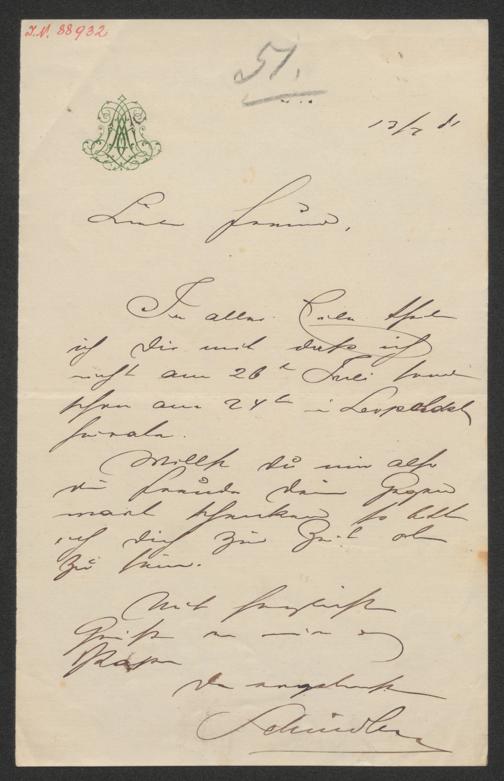 I.N. 88932
51.
12/7 81
Lieber Freund,
In aller Eile theile
ich dir mit daß ich
nicht am 26t Juli sondern
schon am 24t in Leopoldst
heirate.
Willst du mir also
die Freude deiner Gegen
wart schenken so bitte
ich dich zur Zeit da
zu sein.
Mit herzlichst
Gruß an
Papa
dein ergebenster
Schindler